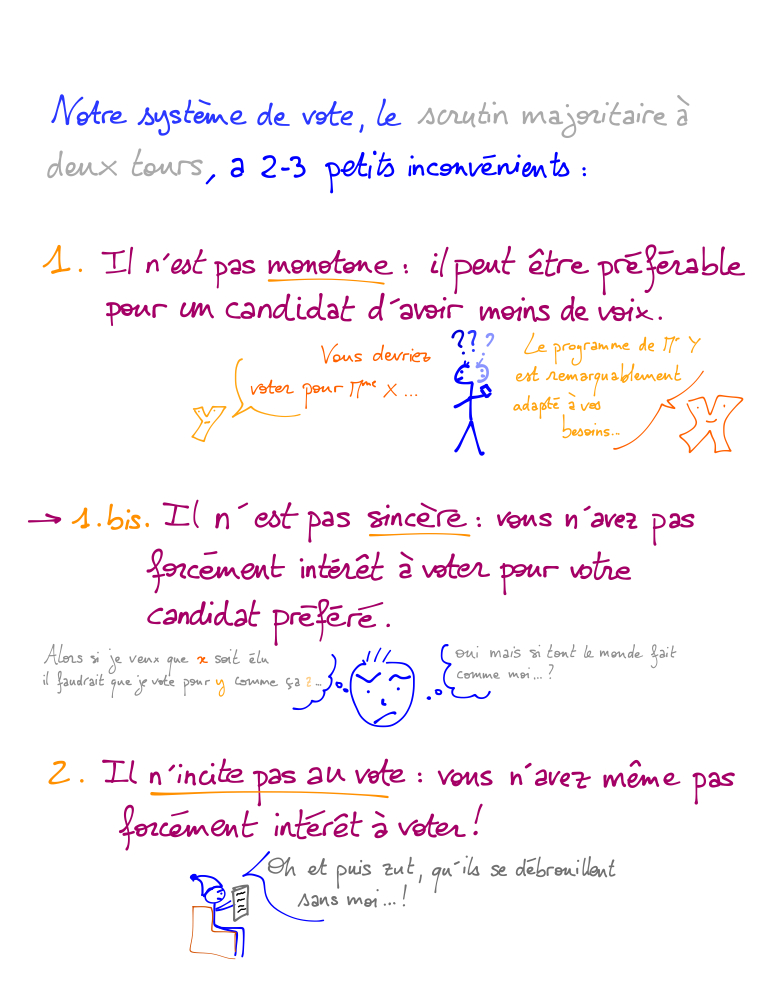 Notre système de vote, le scrutin majoritaire à
deux tours, a 2-3 petits inconvénients :
1. Il n'est pas monotone : il peut être préférable
pour un candidat d'avoir moins de voix.
Vous devriez
voter pour Mme X ...
Y
???
Le programme de Mr Y
est remarquablement
adapté à vos
besoins...
X
→ 1.bis. Il n'est pas sincère : vous n'avez pas
forcément intérêt à voter pour votre
candidat préféré.
Alors si je veux que x soit élu
il faudrait que je vote pour y comme ça z ...
oui mais si tout le monde fait
comme moi...?
2. Il n'incite pas au vote : vous n'avez même pas
forcément intérêt à voter !
Oh et puis zut, qu'ils se débrouillent
sans moi...!